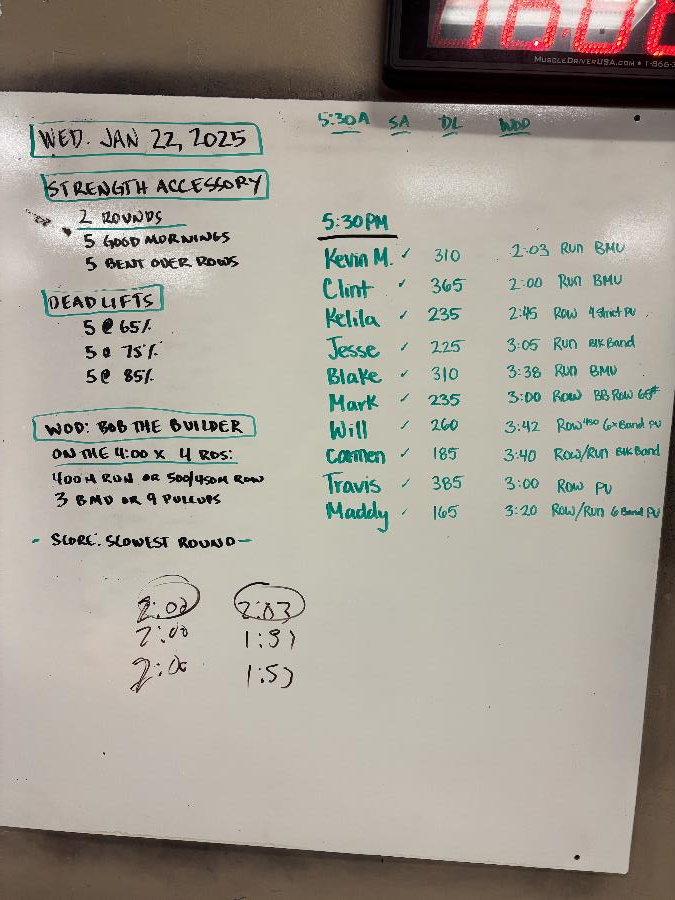 MUSCLEDRIVERUSA.COM • 1-866-
WED. JAN 22, 2025
STRENGTH ACCESSORY
2 ROUNDS
5 GOOD MORNINGS
5 BENT OVER ROWS
DEADLIFTS
5 @ 65%
5 @ 75%
5 @ 85%
WOD: BOB THE BUILDER
ON THE 4:00 X 4 RDS:
400M RUN OR 500/450M ROW
3 BMU OR 9 PULLUPS
- SCORE: SLOWEST ROUND -
5:30A SA DL WOD
5:30PM
Kevin M. ✓ 310 2:03 Run BMU
Clint ✓ 365 2:00 Run BMU
Kelila ✓ 235 2:45 Row 4 strict PU
Jesse ✓ 225 3:05 Run Blk Band
Blake ✓ 310 3:38 Run BMU
Mark ✓ 235 3:00 Row BB Row 65#
Will ✓ 260 3:42 Row 450 G Band PU
Carmen ✓ 185 3:40 Row/Run Blk Band
Travis ✓ 385 3:00 Row PU
Maddy ✓ 165 3:20 Row/Run G Band PU
2:03
2:00